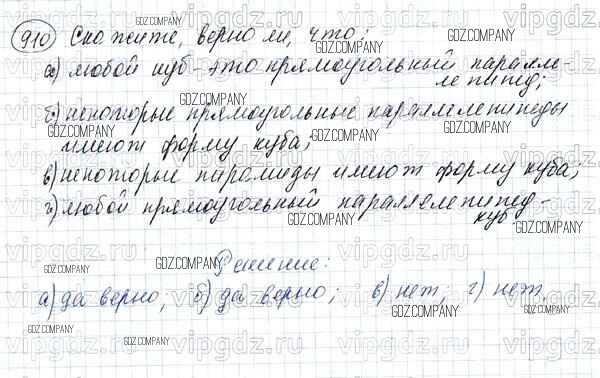 910 Скажите, верно ли, что:
а) любой куб - это прямоугольный паралле-
лепипед;
б) некоторые прямоугольные параллелепипеды
имеют форму куба;
в) некоторые пирамиды имеют форму куба;
г) любой прямоугольный параллелепипед -
куб.
Решение:
а) да верно; б) да верно; в) нет; г) нет.
GDZ.COMPANY
vipgdz.ru